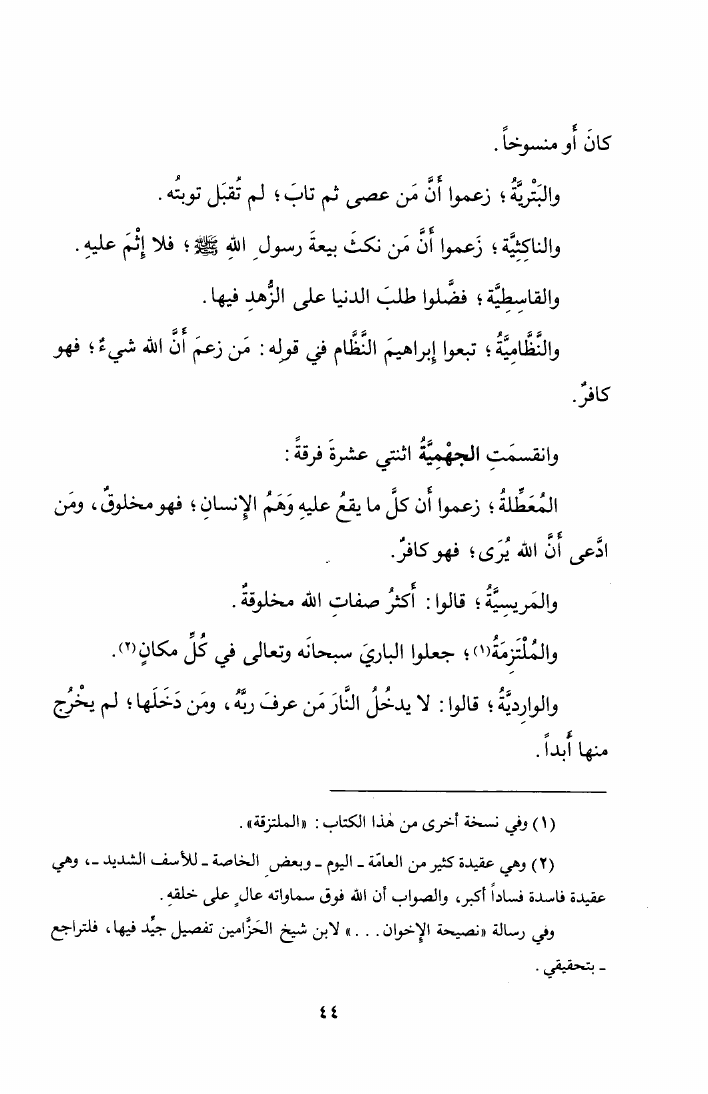 كانَ أَو منسوخاً.
والبَتْرِيَّةُ؛ زعموا أَنَّ مَن عصى ثم تابَ؛ لم تُقبَل توبتُه.
والناكِثِيَّة؛ زَعموا أَنَّ مَن نكثَ بيعةَ رسولِ اللهِ ﷺ؛ فلا إِثْمَ عليهِ.
والقاسِطِيَّة؛ فضَّلوا طلبَ الدنيا على الزُّهدِ فيها.
والنَّظَّامِيَّةُ؛ تبعوا إِبراهيمَ النَّظَّام في قولِه: مَن زعمَ أَنَّ الله شيءٌ؛ فهو
كافرٌ.
وانقسمَتِ الجهْمِيَّةُ اثنتي عشرةَ فرقةً:
المُعَطِّلةُ؛ زعموا أن كلَّ ما يقعُ عليهِ وَهَمُ الإِنسانِ؛ فهو مخلوقٌ، ومَن
ادَّعى أَنَّ الله يُرَى؛ فهو كافرٌ.
والمَريسِيَّةُ؛ قالوا: أَكثرُ صفاتِ الله مخلوقةٌ.
والمُلْتَزِمَةُ(١)؛ جعلوا الباريَ سبحانَه وتعالى في كُلِّ مكانٍ(٢).
والوارِدِيَّةُ؛ قالوا: لا يدخُلُ النَّارَ مَن عرفَ ربَّهُ، ومَن دَخَلَها؛ لم يخْرُج
منها أَبداً.
(١) وفي نسخة أخرى من هٰذا الكتاب: «الملتزقة».
(٢) وهي عقيدة كثير من العامّة ـ اليوم ـ وبعضِ الخاصة ـ للأسف الشديد ـ، وهي
عقيدة فاسدة فساداً أكبر، والصواب أن الله فوق سماواته عالٍ على خلقهِ.
وفي رسالة «نصيحة الإِخوان...» لابن شيخ الحَزَّامين تفصيل جيِّد فيها، فلتراجع
ـ بتحقيقي.
٤٤